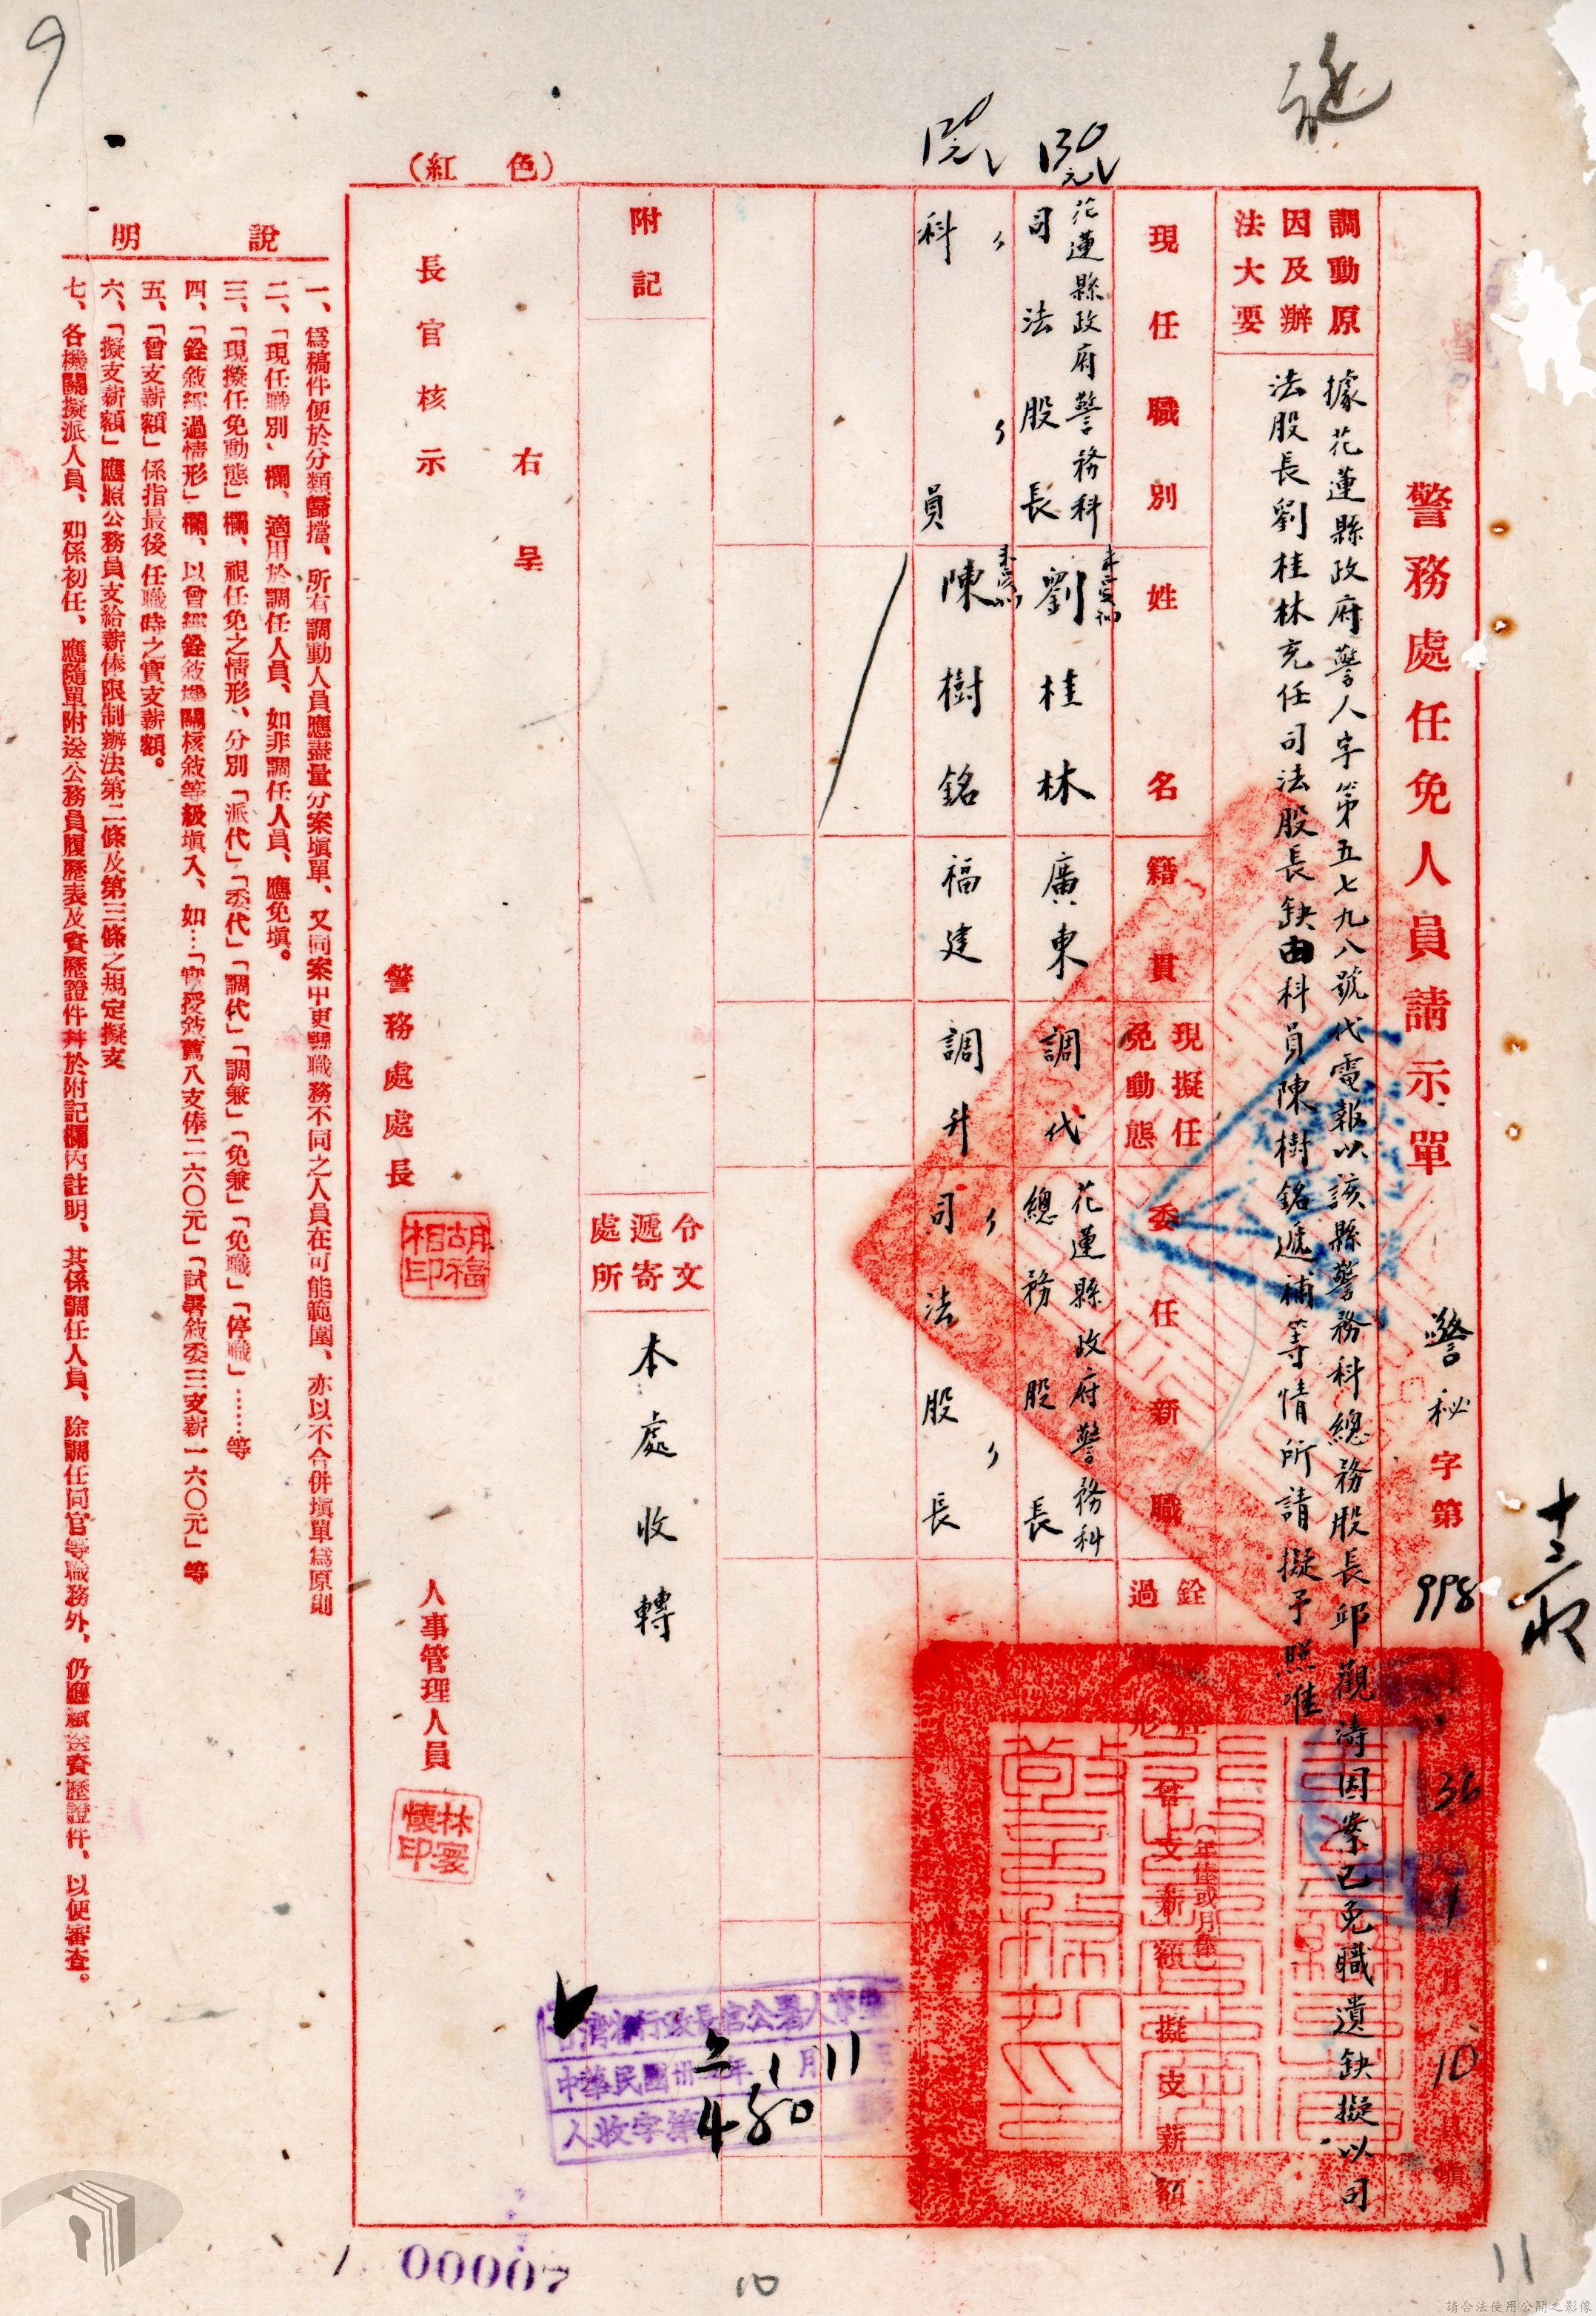 警務處任免人員請示單
警秘字第998
36
1
10
調動原因及辦法大要
據花蓮縣政府警人字第五七九八號代電報以該縣警務科總務股長邱觀濤因案已免職遺缺擬以司
法股長劉桂林充任司法股長缺由科員陳樹銘遞補等情所請擬予照准
現任職別
姓名
籍貫
現擬任免動態
委任新職
銓
過
曾支薪額
(年俸或月俸)
擬支薪額
130元
花蓮縣政府警務科
司法股長
未受訓
劉桂林
廣東
調代
花蓮縣政府警務科
總務股長
科員
陳樹銘
福建
調升
司法股長
附記
令文遞寄處所
本處收轉
右呈
長官核示
警務處處長
胡福相印
人事管理人員
林寰懷印
(紅色)
說明
一、為稿件便於分類歸擋、所有調動人員應盡量分案填單、又同案中更調職務不同之人員在可能範圍、亦以不合併填單為原則
二、「現任職別」欄、適用於調任人員、如非調任人員、應免填。
三、「現擬任免動態」欄、視任免之情形、分別「派代」「委代」「調代」「調兼」「免兼」「免職」「停職」……等
四、「銓敘經過情形」欄、以曾經銓敘機關核敘等級填入、如…「實授敘薦八支俸二六〇元」「試署敘委三支薪一六〇元」等
五、「曾支薪額」係指最後任職時之實支薪額。
六、「擬支薪額」應照公務員支給薪俸限制辦法第二條及第三條之規定擬支
七、各機關擬派人員、如係初任、應隨單附送公務員履歷表及資歷證件并於附記欄內註明、其係調任人員、除調任同官等職務外、仍應檢送資歷證件、以便審查。
台灣省行政長官公署人事室
中華民國卅六年1月11
人收字第480
00007
10
11
9
請合法使用公開之影像